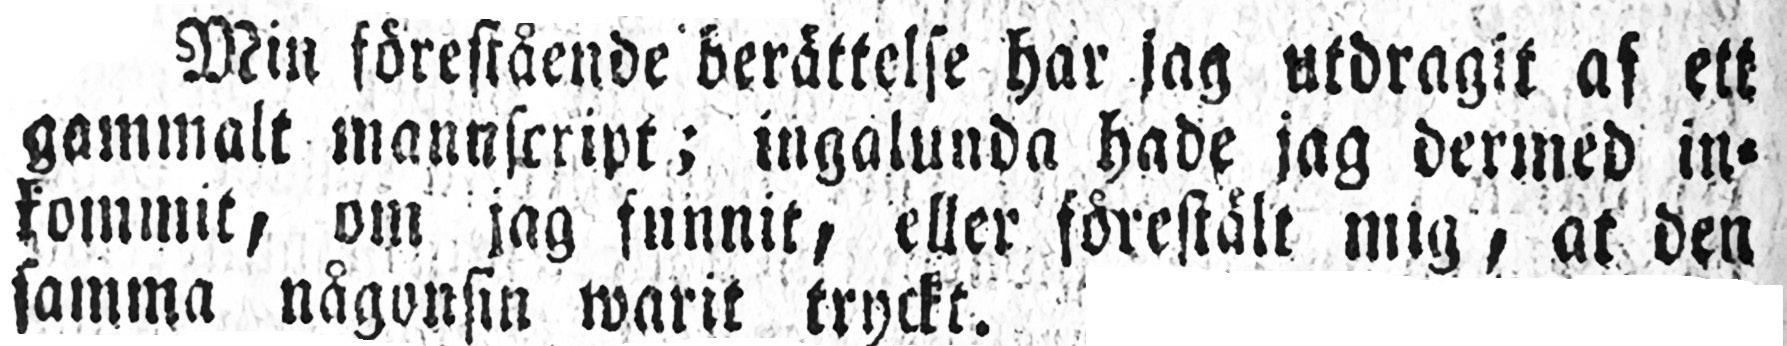 Min föreſtående berättelſe har jag utdragit af ett
gammalt mannſcript; ingalunda hade jag dermed in-
kommit, om jag funnit, eller föreſtält mig, at den
ſamma någonſin warit tryckt.